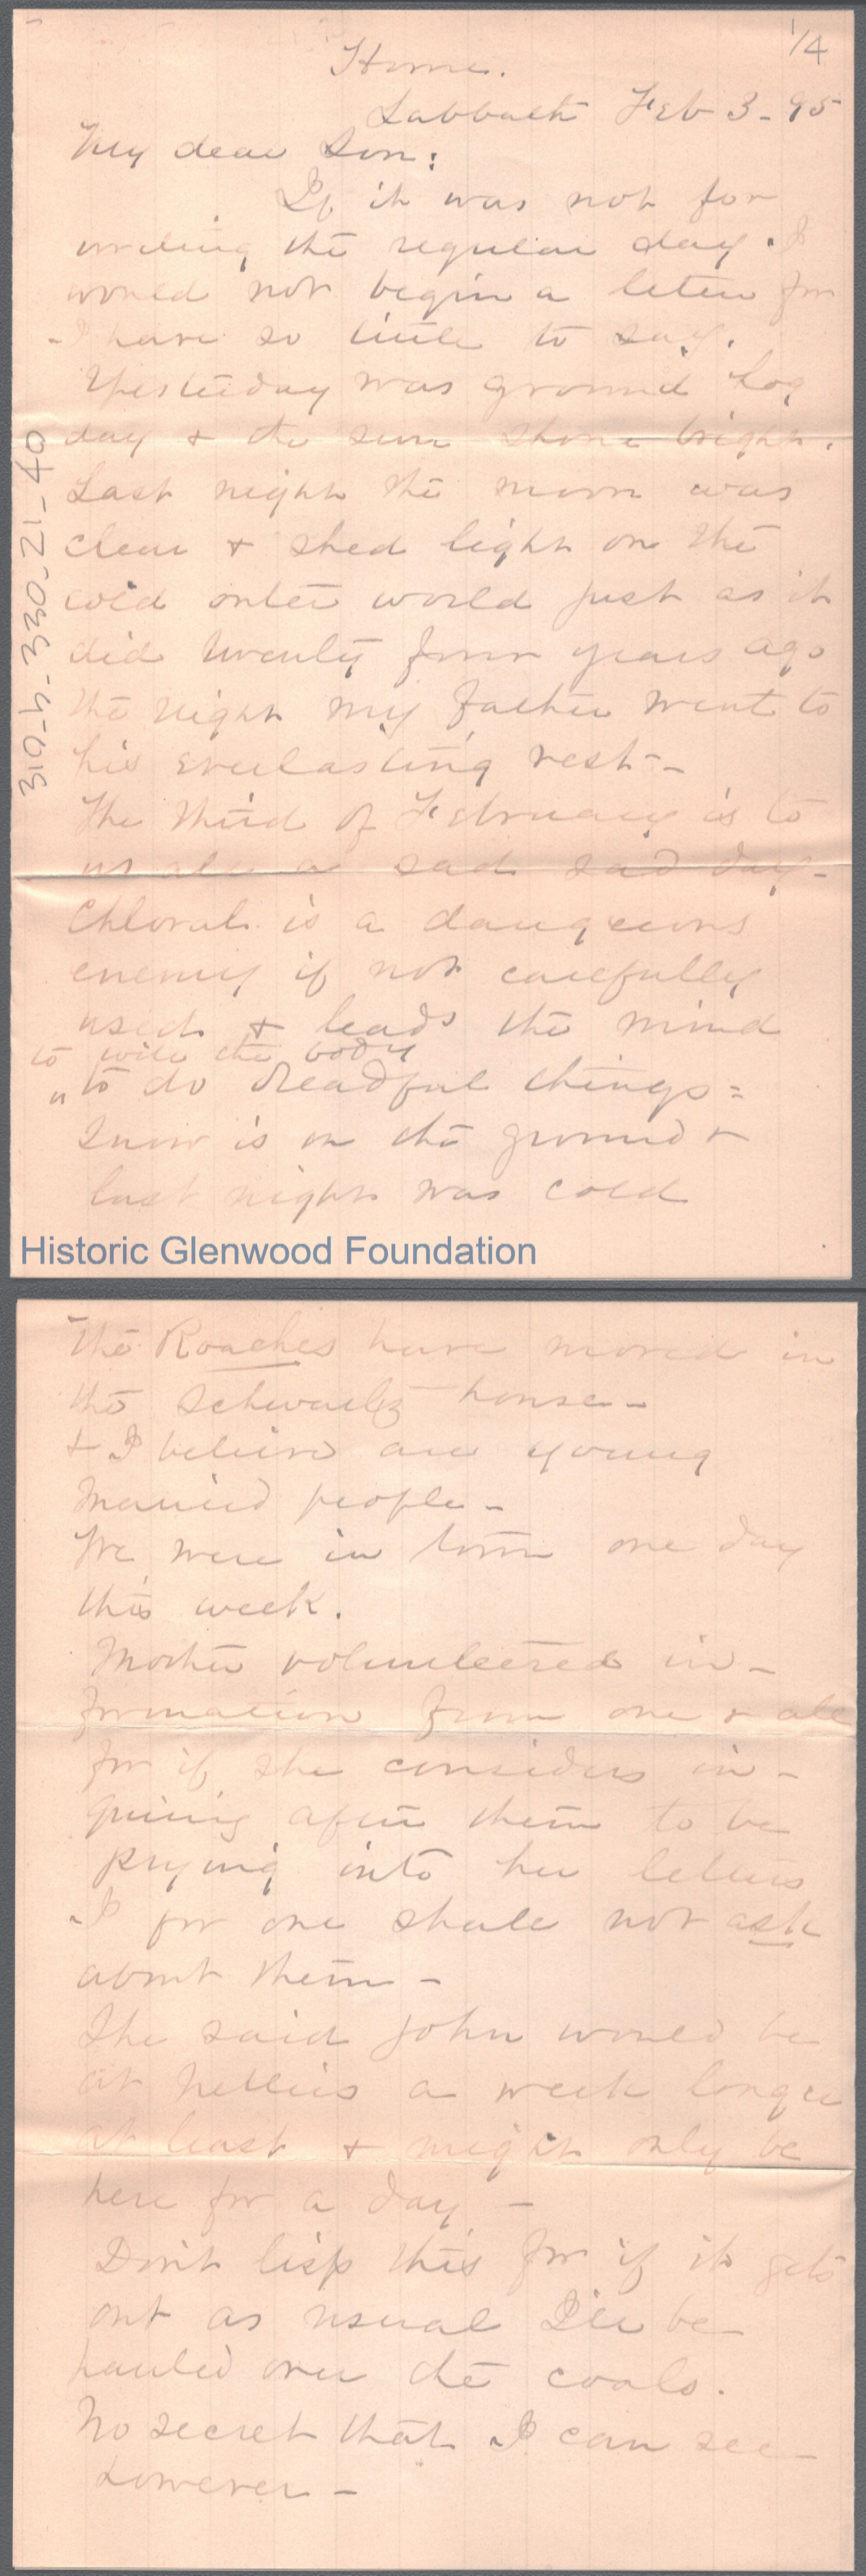 1/4
Home.
Sabbath Feb 3-95
My dear Son:
If it was not for
writing the regular day. I
would not begin a letter for
I have so little to say.
Yesterday was ground hog
day & the sun shone bright.
Last night the moon was
clear & shed light on the
cold outer world just as it
did twenty four years ago
the night my father went to
his everlasting rest--
The third of February is to
us all a sad sad day-
Chloral is a dangerous
enemy if not carefully
used & leads the mind
to will the body
" to do dreadful things=
Snow is on the ground &
last night was cold
310-4-330-21-40
Historic Glenwood Foundation
The Roaches have moved in
the Schwartz house-
& I believe are young
married people-
We were in town one day
this week.
Mother volunteered in-
formation from one & all
for if she considers in-
quiring after them to be
prying into her letters
I for one shall not ask
about them-
She said John would be
at Nellies a week longer
at least & might only be
here for a day-
Don't lisp this for if it gets
out as usual I'll be
hauled over the coals.
No secret that I can see
however-